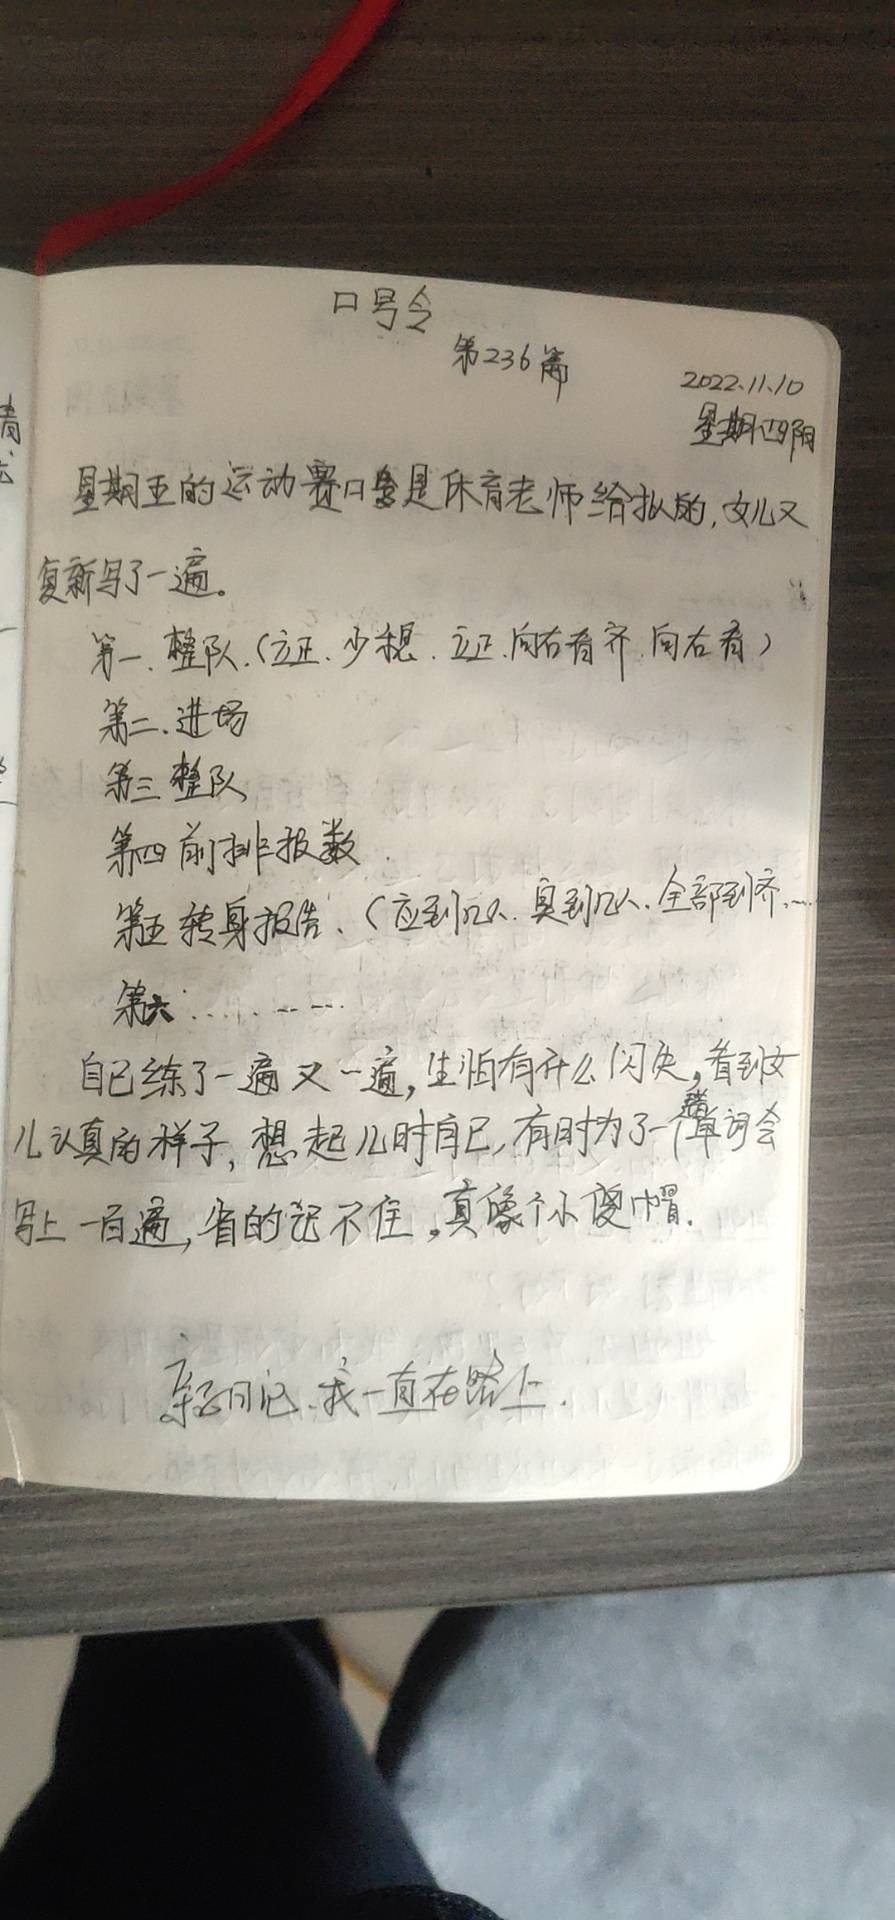 口号令
第236篇
2022.11.10
星期四阴
星期五的运动赛口号是体育老师给拟的,女儿又
复新写了一遍。
第一.整队.(立正.少想.立正.向右看齐.向右看)
第二.进场
第三整队
第四前排报数.
第五转身报告.(应到几人.奥到几人.全部到齐.....
第六:.........
自己练了一遍又一遍,生怕有什么闪失,看到女
儿认真的样子,想起儿时自己,有时为了一个单词会
写上一百遍,省的记不住,真像个小傻帽.
亲子日记.我一直在路上.